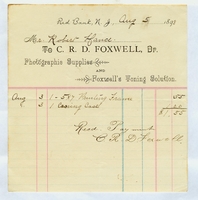 Red Bank, N. J., Aug 5, 1891
Mr. Robert
To C. R. D. FOXWELL, Dr.
Photographic Supplies
AND
Foxwell's Toning Solution.
Aug 3 1 - 5x7 Printing Frame 55
3 1
$ 1 55
Recd Payment
C R D Foxwell